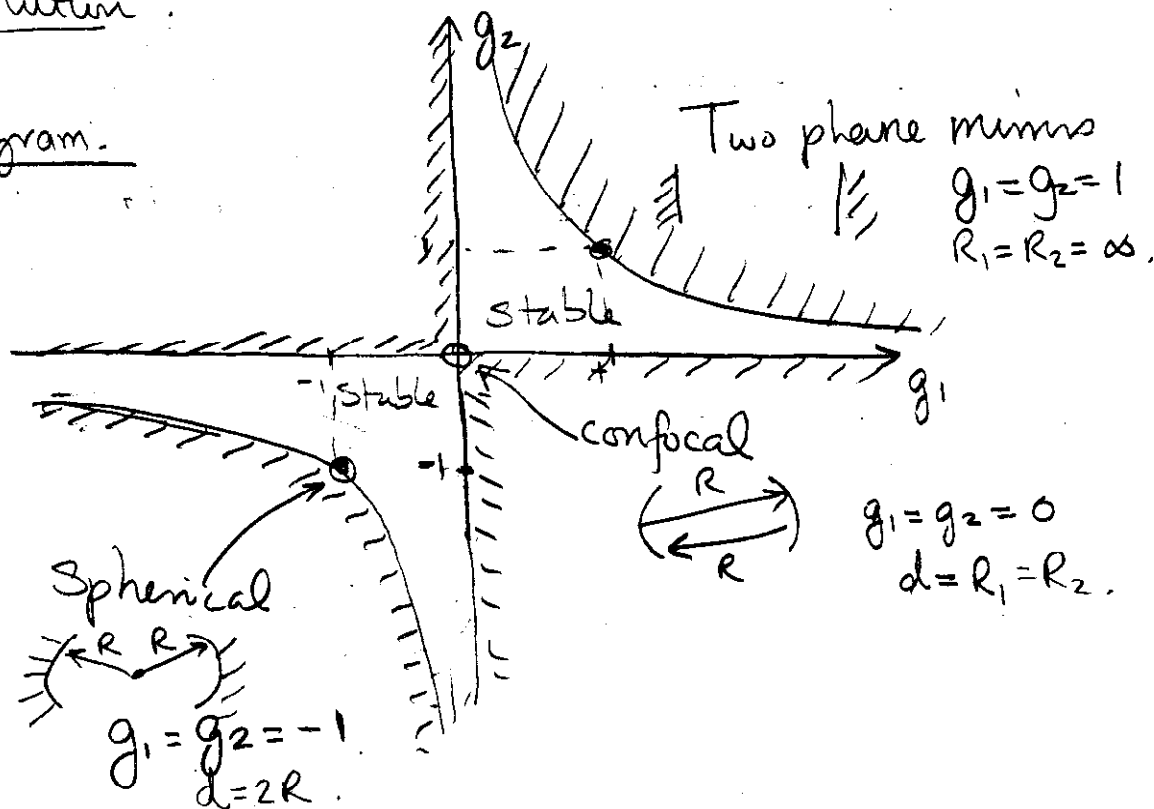 g₂
gram.
Two plane mirrors
g₁ = g₂ = 1
R₁ = R₂ = ∞.
1
stable
-1
1
g₁
stable
confocal
-1
R
R
g₁ = g₂ = 0
d = R₁ = R₂.
Spherical
R R
g₁ = g₂ = -1
d = 2R.